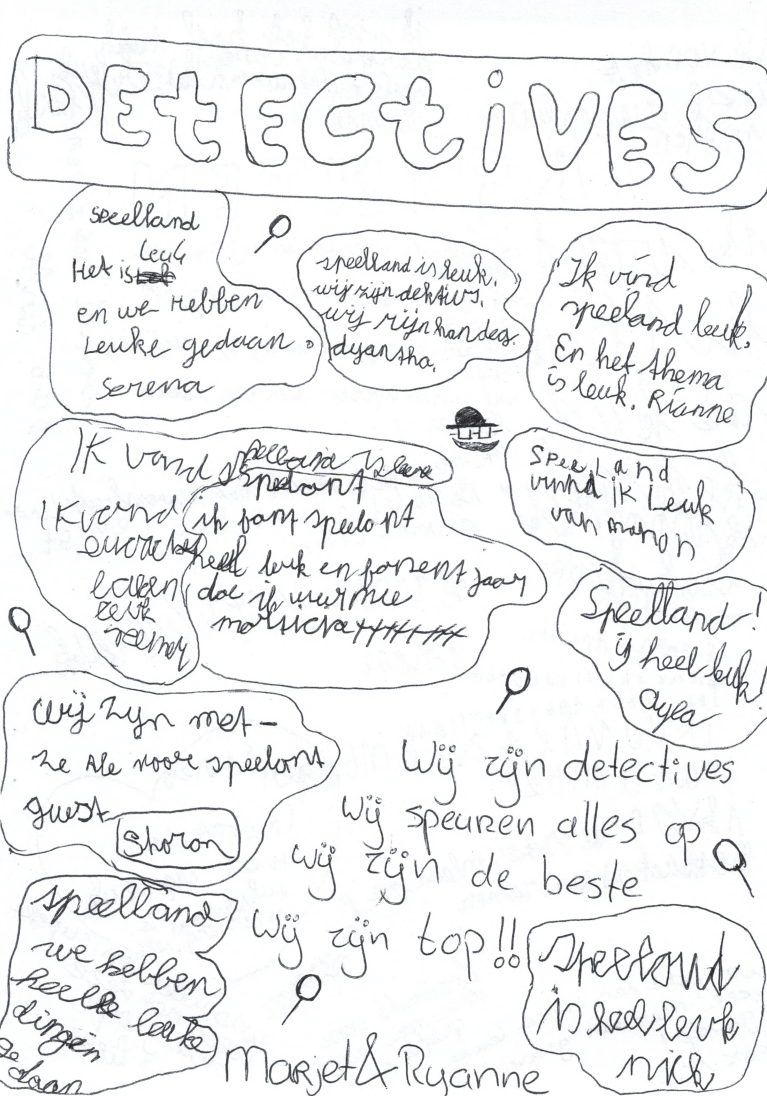 DEtECtiVES
speelland
Het is leuk
en we Hebben
Leuke gedaan.
serena
speelland is leuk.
wij zijn
wij zijn
dyantha.
Ik vind
speeland leuk.
En het thema
is leuk. Rianne
Ik vond speelland is leuk
spelont
Ik vond
ik fant spelont
heel leuk en
leuk
SpeeLand
vind ik Leuk
van manon
Speelland!
ij heel leuk!
Ayla
wij zyn met-
ze Ale voor spelont
guest
Sharon
Wij zijn detectives
Wij speuren alles op
wij zijn de beste
Wij zijn top!!
speelland
we hebben
heele leuke
dingen
gedaan
Speeland
is heel leuk
nick
Marjet & Ryanne